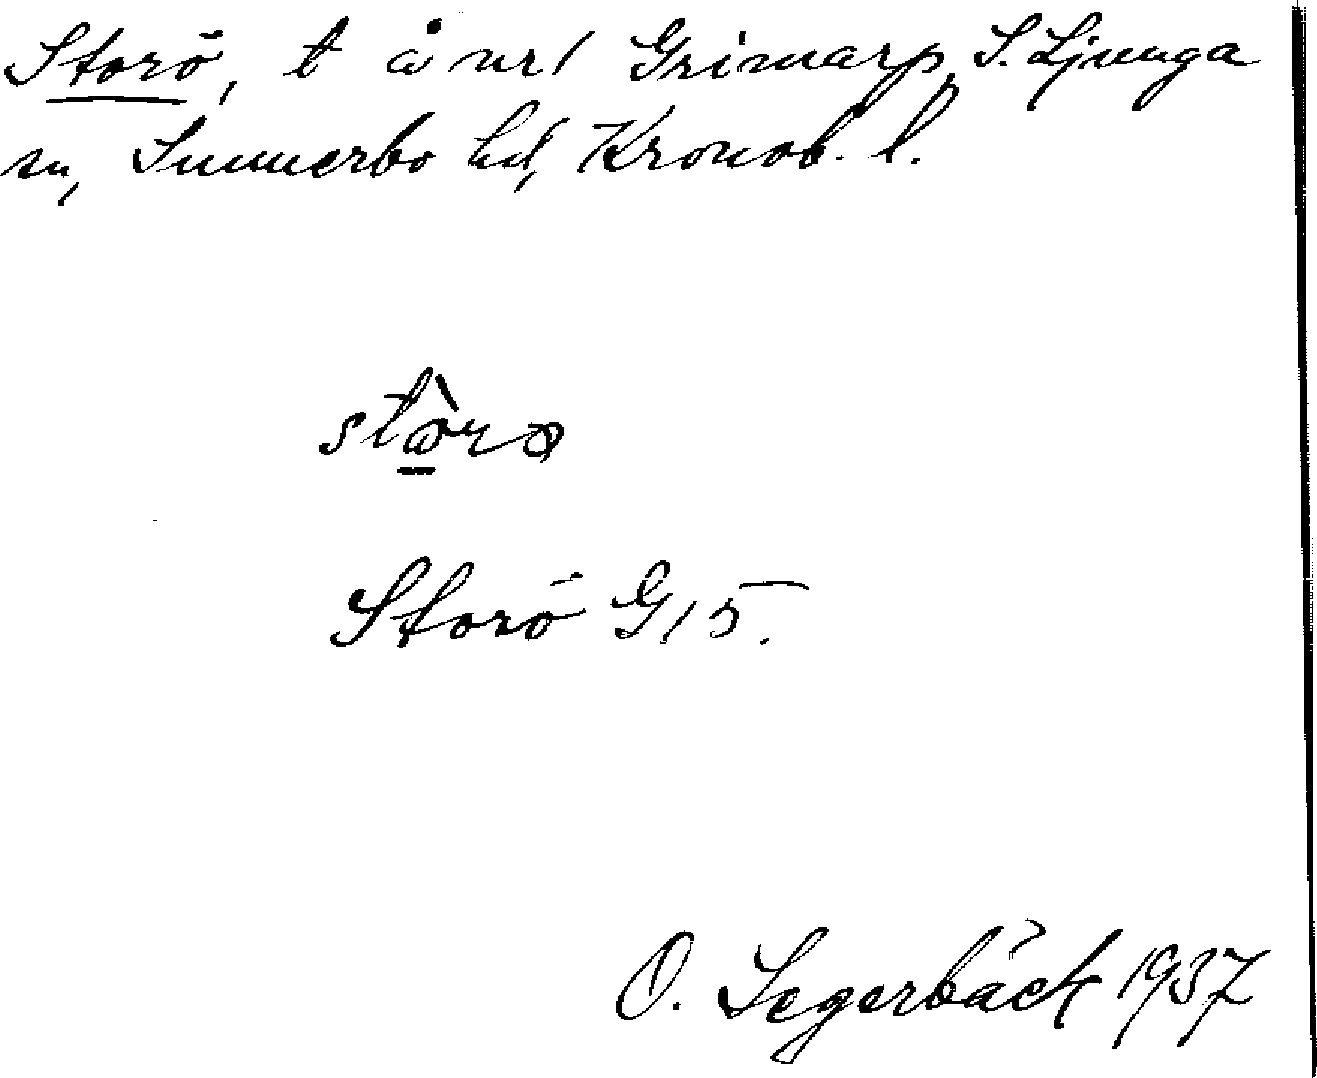 Storö, t å nr 1 Grimarp, S. Ljunga
sn, Sunnerbo hd, Kronob. l.
Storö G 15.
O. Segerbäck 1937